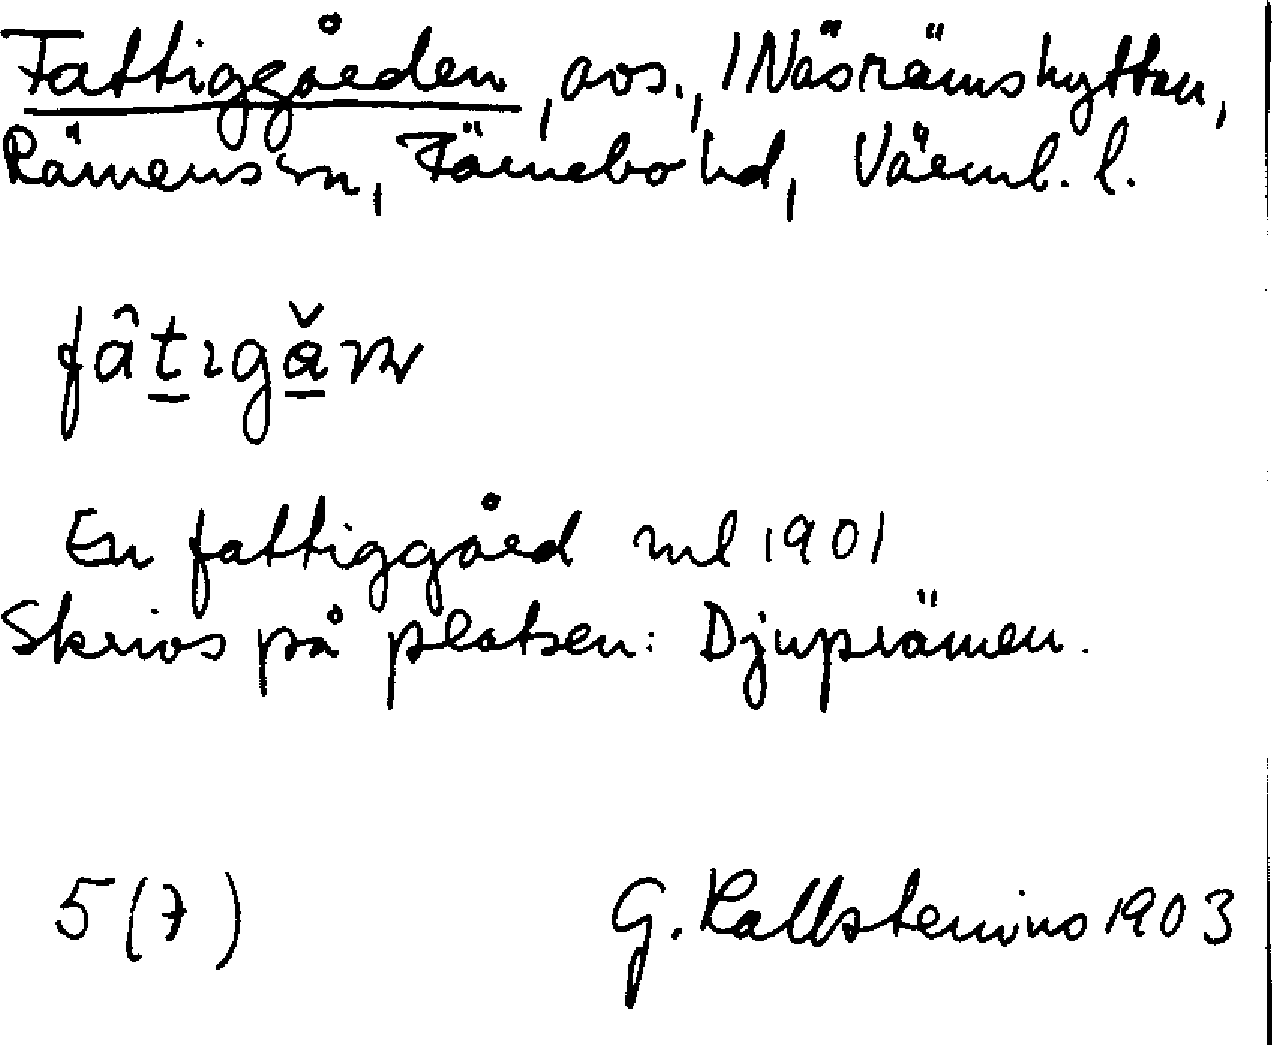 Fattiggården, avs., /Näsrämshytten,
Rämens sn, Färnebo hd, Värml. l.
fâtıgǎṇ
En fattiggård ml 1901
Skrivs på platsen: Djuprämen.
5(7) G. Kallstenius 1903